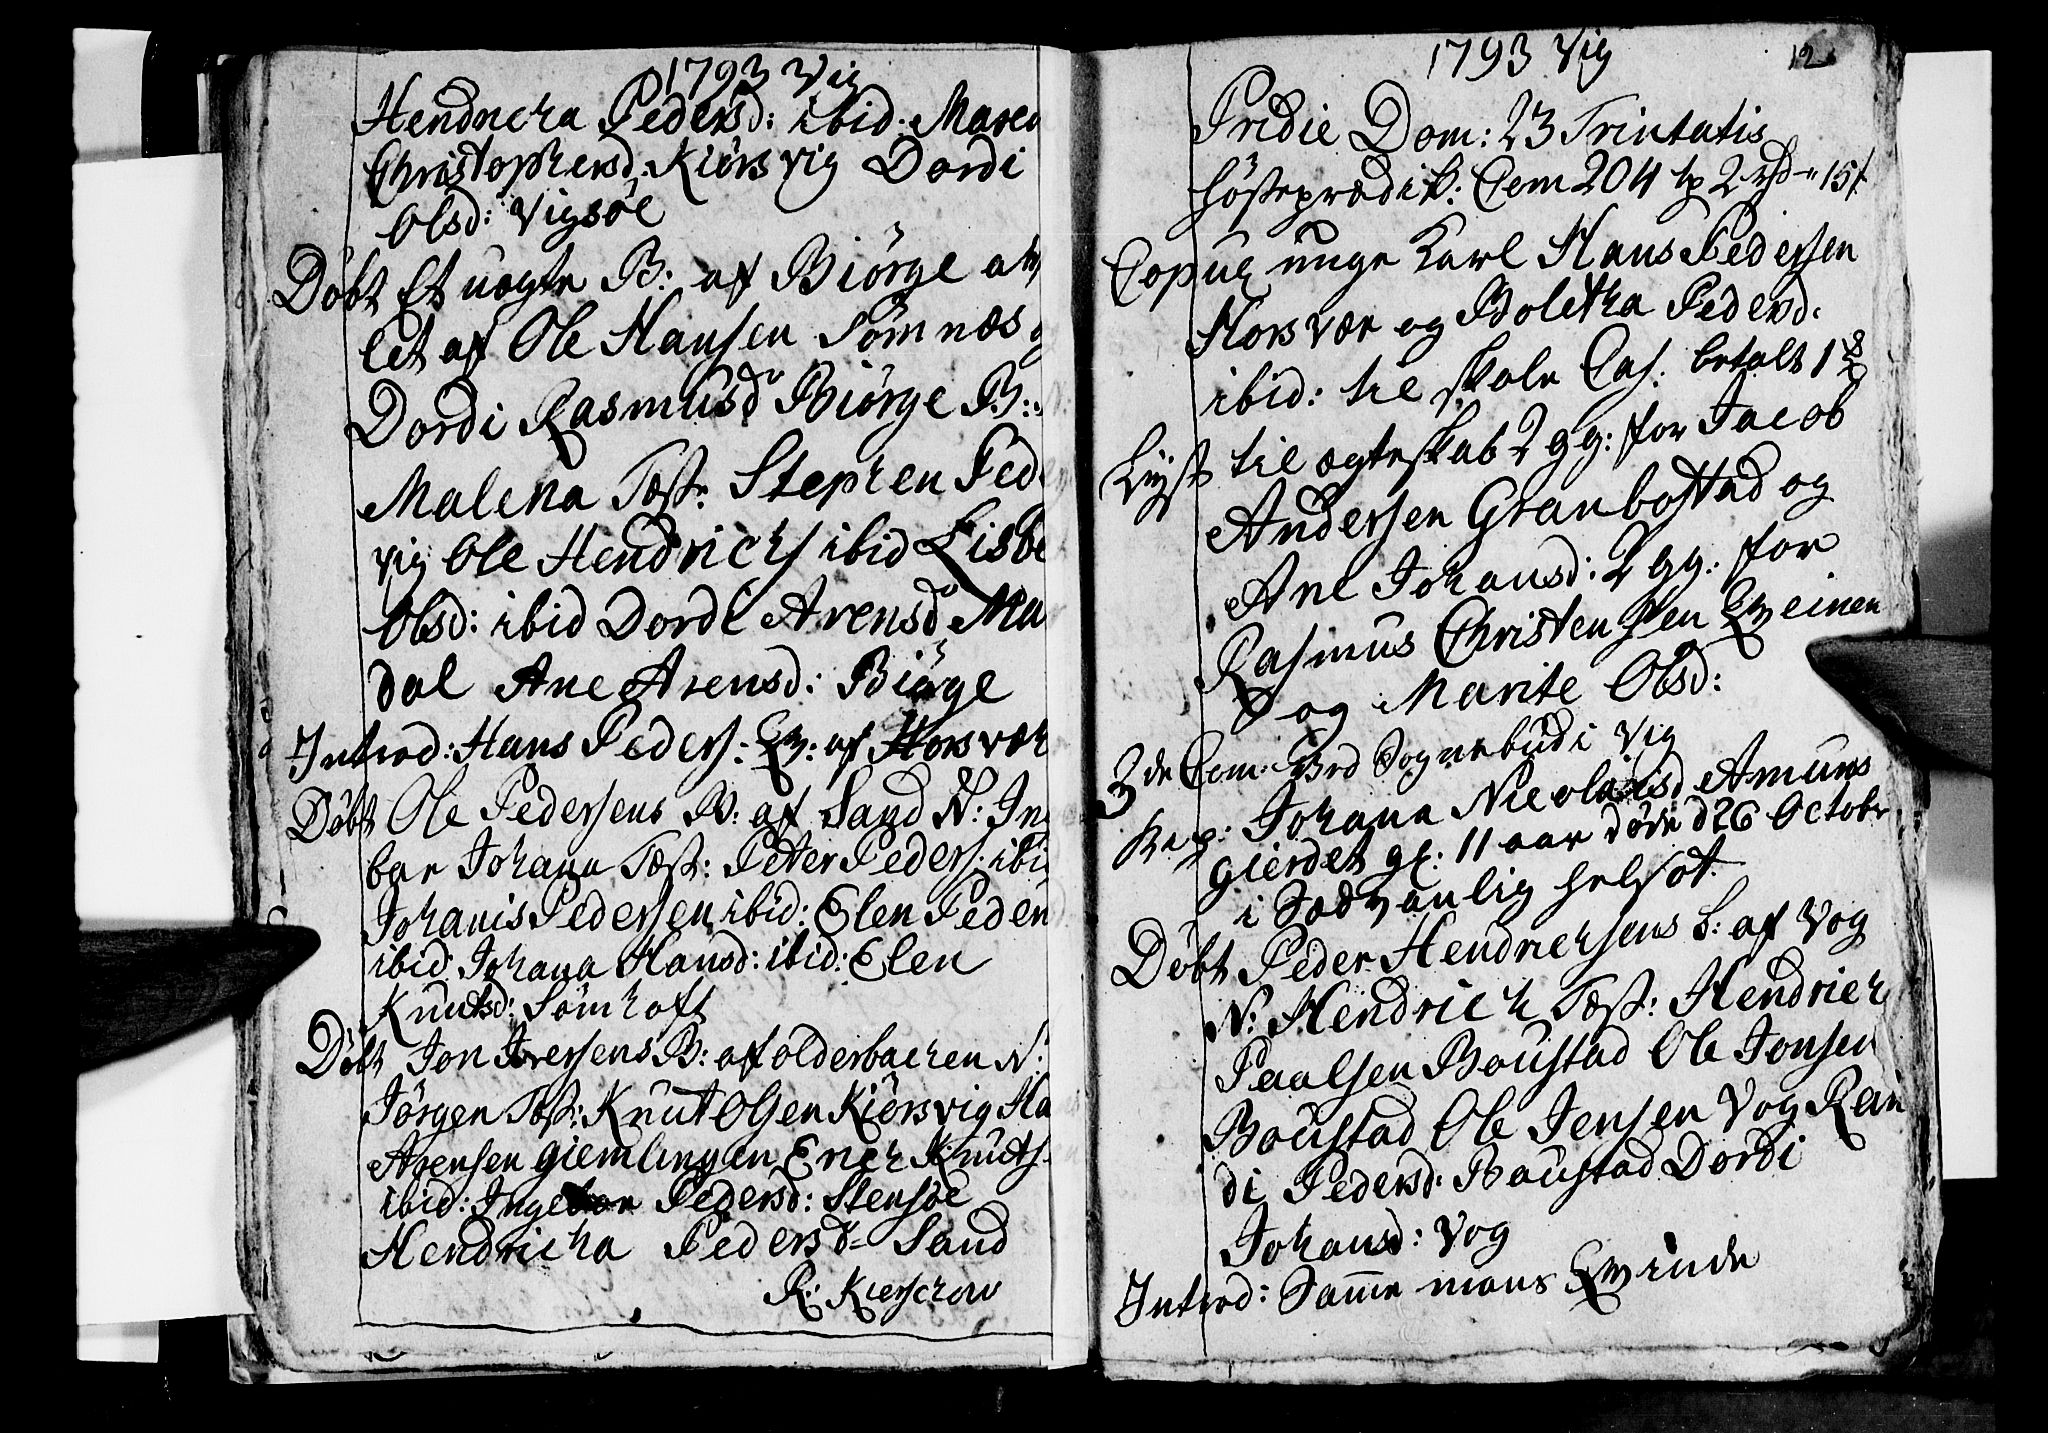 1793 Vig
Hendricha Pedersd: ibid. Maren
Christophersd. Kiørsvig Dordi
Olsd: Vigsøe
Døbt Et uægte B: af Biørge av
let af Ole Hansen Sømnæs
Dordi Rasmusdr Biørge B:
Malena Test: Stephen Ped
vig Ole Hendrichs ibid Lisbe
Olsd: ibid Dordi Arensd Ma
dal Ane Arensd: Biørge
Introd: Hans Peders: Qv: af Horsvær
Døbt Ole Pedersens B: af Sand N: In
bor Johana Test: Peter Peders: ibid
Johanis Pedersen ibid: Elen Peder
ibid Johana Hansd: ibid: Elen
Knutsd: Sømhoft
Døbt Jon Iversens B: af olderbachen N:
Jørgen Test: Knut Olsen Kiørsvig Ha
Arensen giemlingen Ener Knuts
ibid: Ingebor Pedersd: Stensøe
Hendricha Pedersdr Sand
R: Kierschow
1793 Vig 12
Pridie Dom: 23 Trintatis
Høsteprædik: Com 204 tp 2 rd 15
Copul unge Karl Hans Pedersen
Horsvær og Boletha Pedersd:
ibid: til skole Cas. betalt 1
Lyst til ægteskab 2 gg: for Jacob
Andersen Granbostad og
Ane Johansd: 2 gg: for
Rasmus Christensen Qveinen
og Marite Olsd:
3de Com: Brd Sognebud i Vig
Johana Nicolaisd Amuns
gierdet gl: 11 aar døde d 26 Octobr
i Sædvanlig helsot
Døbt Peder Hendrichsens B: af Vog
N: Hendrich Test: Hendrich
Paalsen Boustad Ole Jonsen
Boustad Ole Jensen Vog Ran
di Pedersd: Boustad Dordi
Johansd: Vog
Introd: Samme mans Qvinde